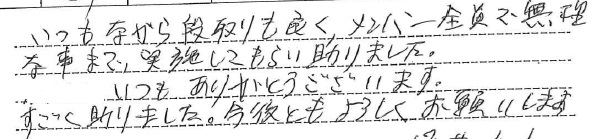 いつもながら段取りも良く、メンバー全員で無理
な事まで、実施してもらい助りました。
いつもありがとうございます。
すごく助りました。今後ともよろしくお願いします